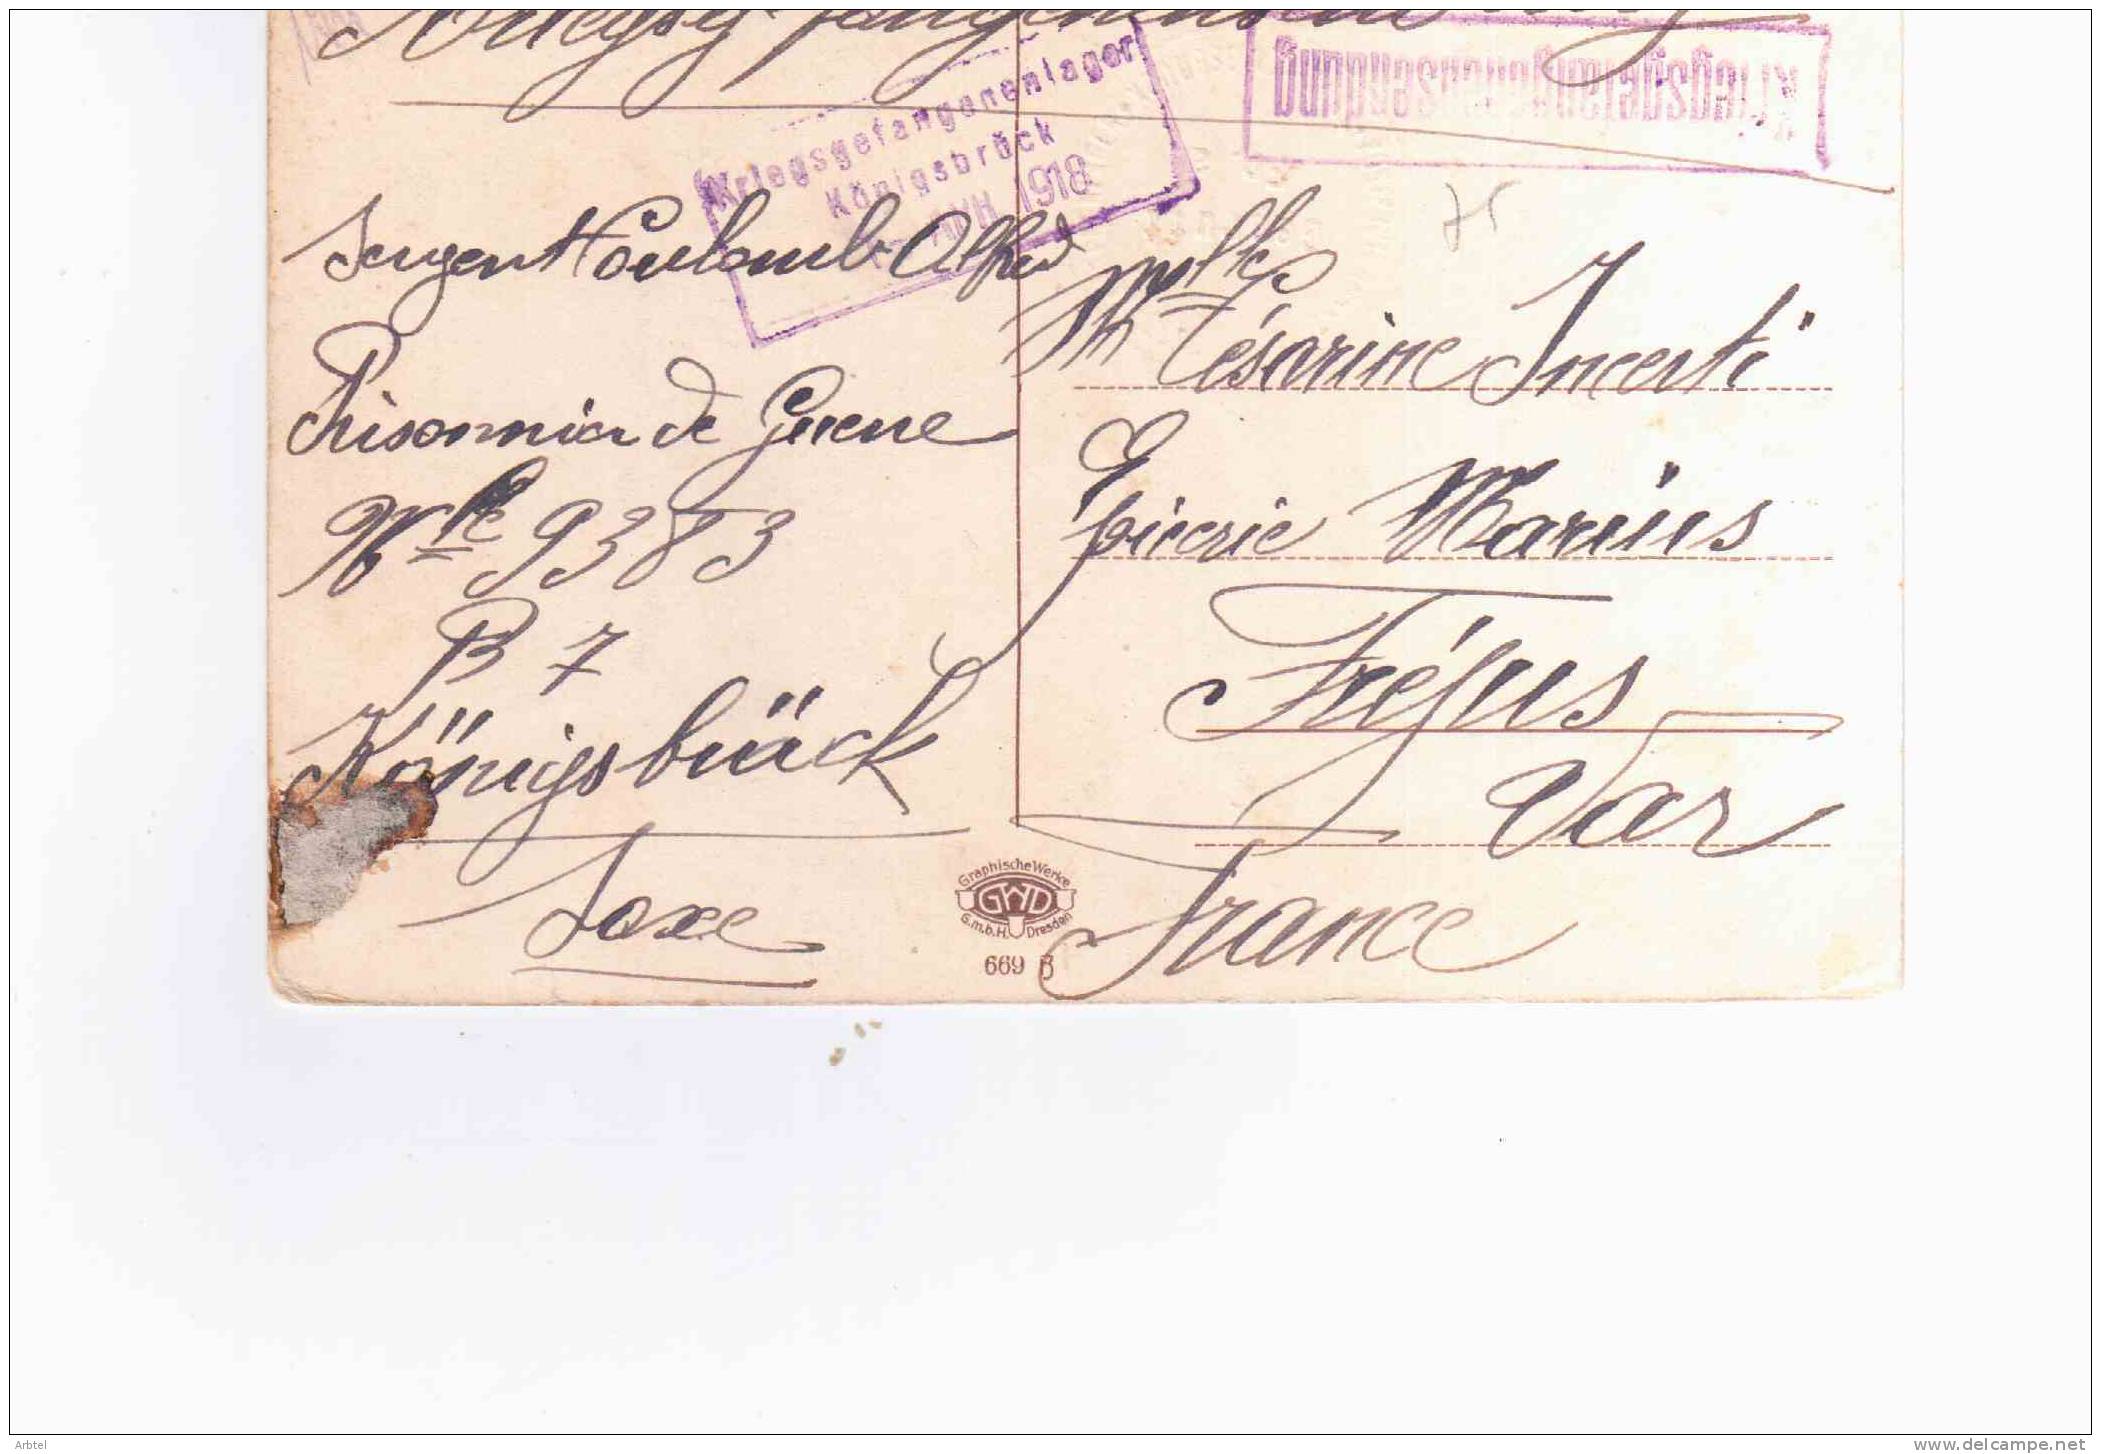 Kriegsgefangenensendung
Kriegsgefangenensendung
Kriegsgefangenenlager
Königsbrück
1918
75
Sergent Coulomb Alfred
Prisonnier de Guerre
Mle 9383
B 7
Königsbrück
Saxe
Mlles
Césarine Incerti
Épicerie Marius
Fréjus
Var
France
Graphische Werke
GWD
G.m.b.H. Dresden
669 B
Arbtel
www.delcampe.net